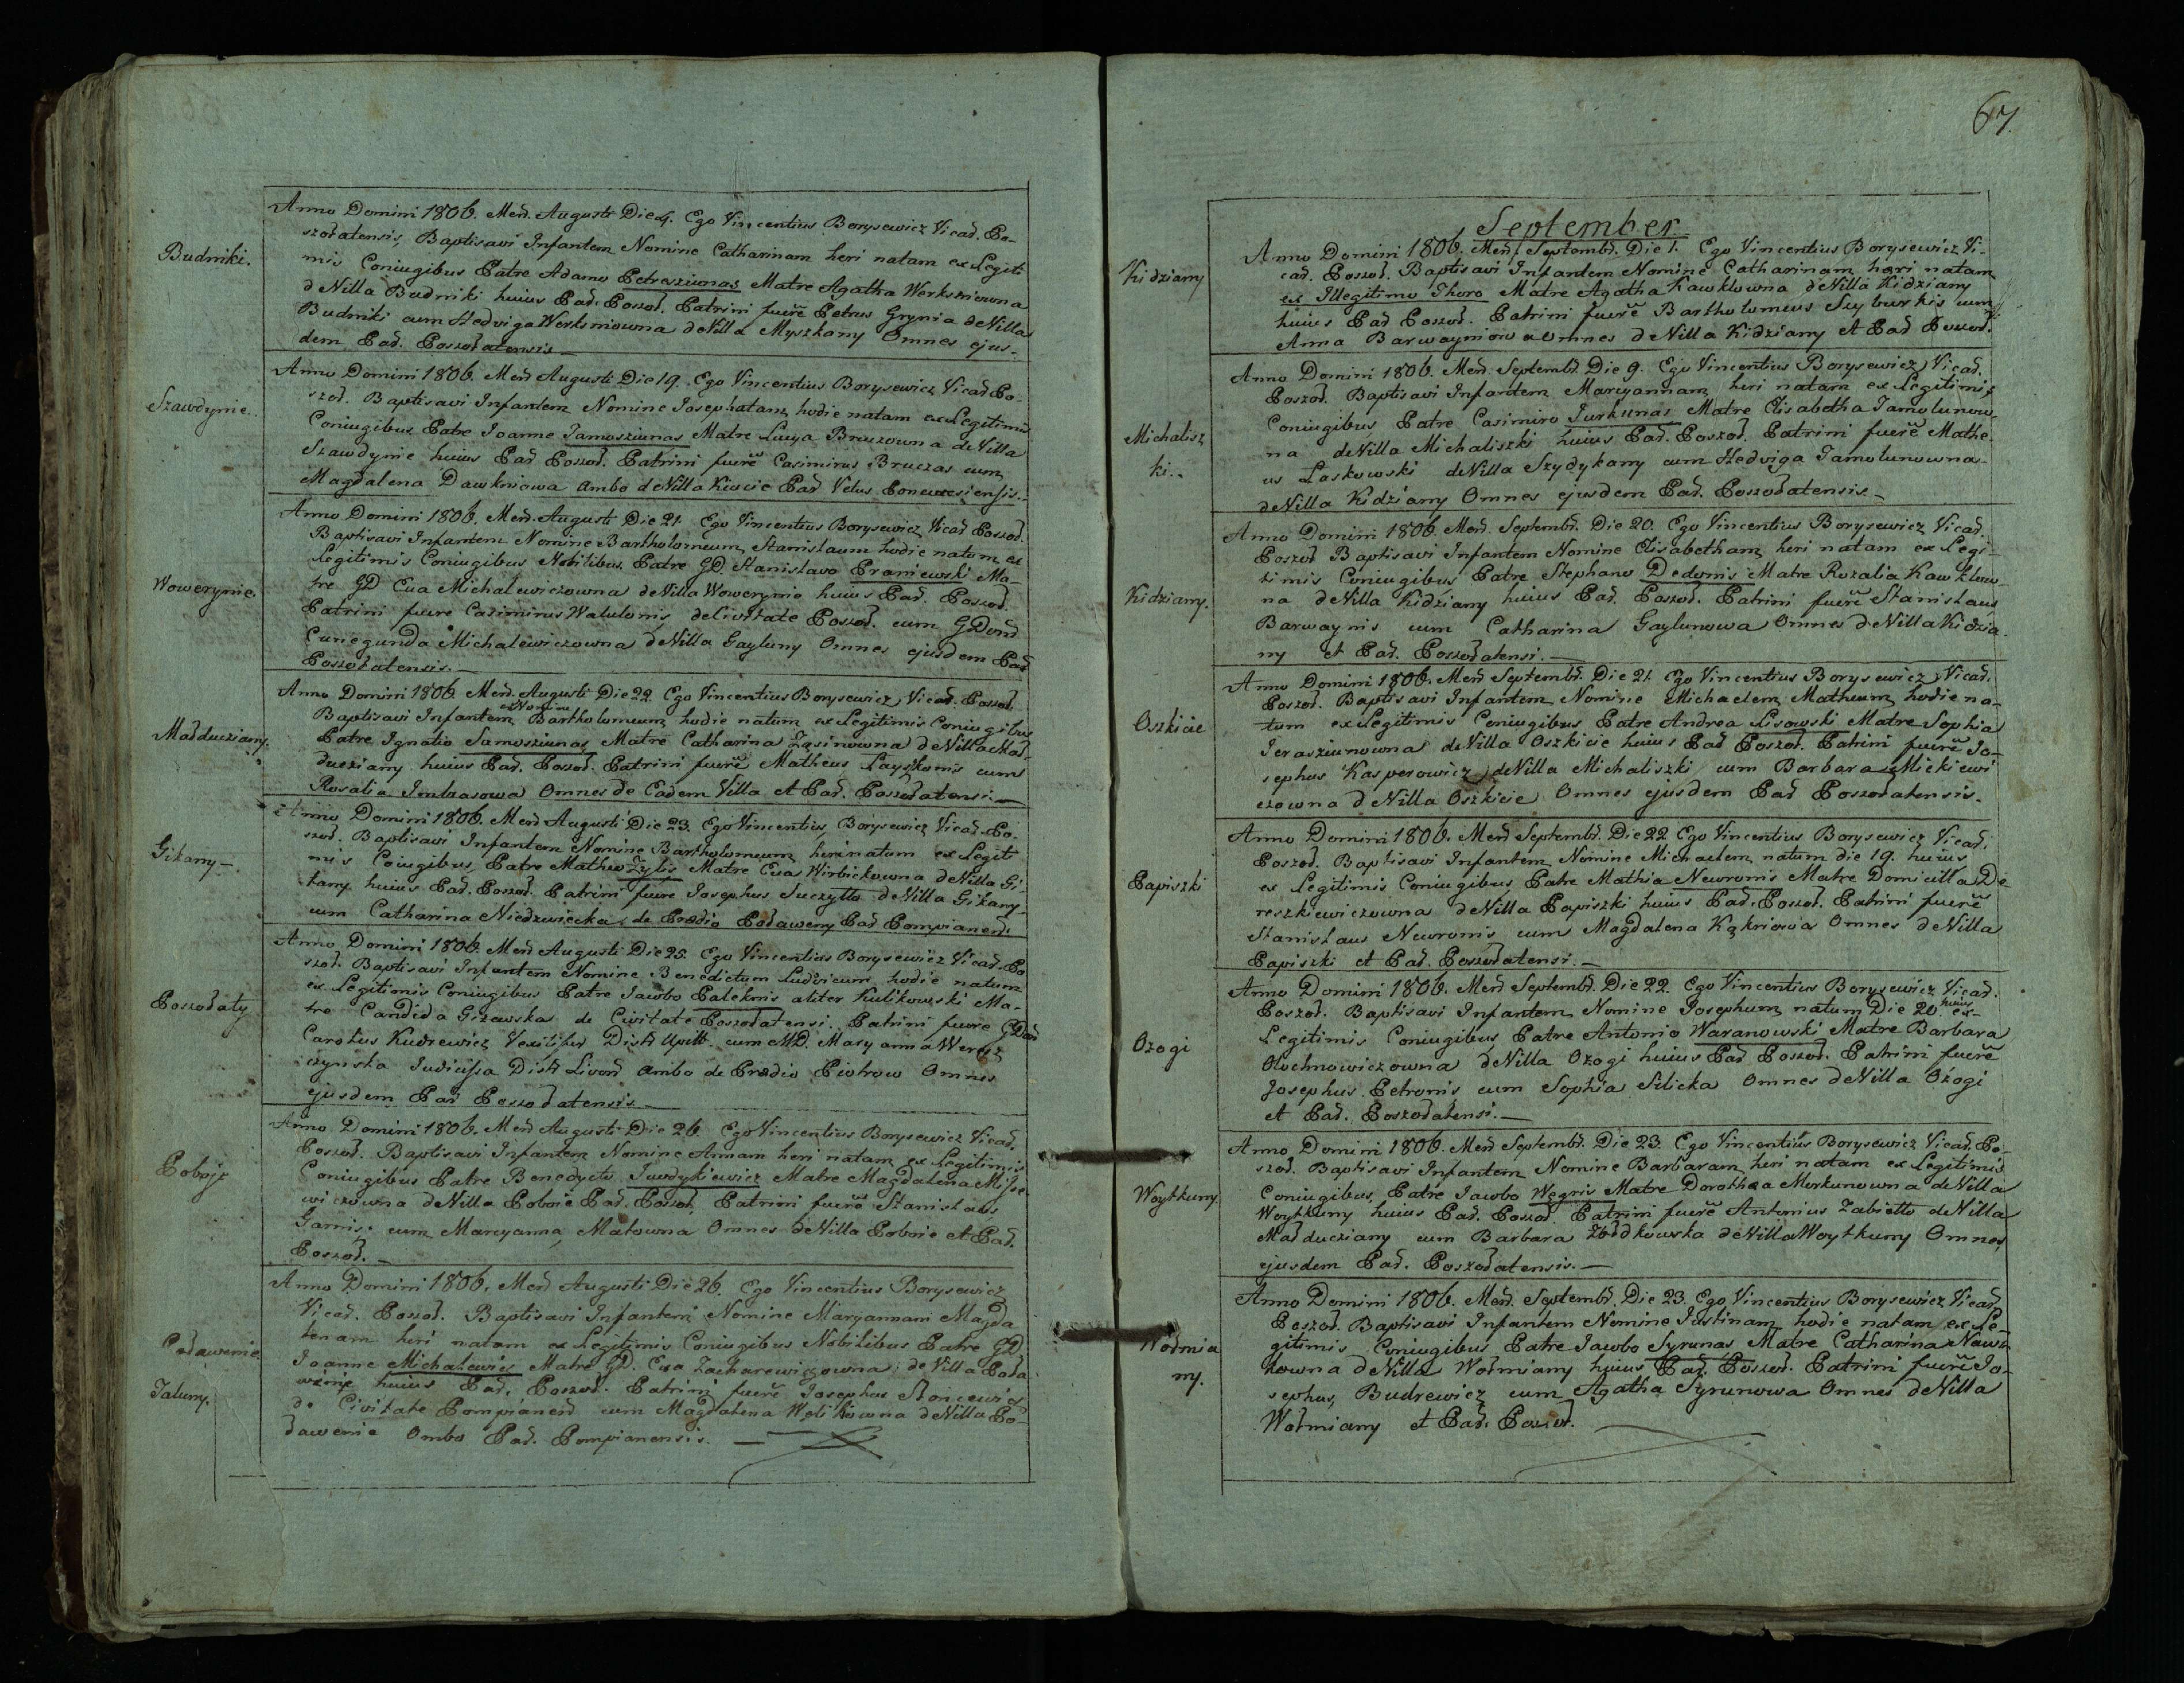 Budniki.
Anno Domini 1806. Men̄. Augusti Die 4. Ego Vincentius Borysewicz Vicar̄. Po-
szoł̄atensis, Baptisavi Infantem Nomine Catharinam heri natam ex Legiti
mis Coniugibus Patre Adamo Petraszunas Matre Agatha Werksniowna
de Villa Budniki huius Par̄. Poszoł̄. Patrini fuerē Petrus Grynia de Villa
Budniki cum Hedviga Werksniowna de Villa Myszkany Omnes ejus-
dem Par̄. Poszoł̄atensis —
Szawdynie.
Anno Domini 1806. Men̄ Augusti Die 19. Ego Vincentius Borysewicz Vicar̄ Po-
szoł̄. Baptisavi Infantem Nomine Josephatam hodie natam ex Legitimis
Coniugibus Patre Joanne Jamosziunas Matre Lucya Bruzowna de Villa
Szawdynie huius Par̄ Poszoł̄. Patrini fuerē Casimirus Bruczas cum
Magdalena Dawkniowa ambo de Villa Kiucie Par̄ Velus
Wowerynie.
Anno Domini 1806. Men̄. Augusti Die 21. Ego Vincentius Borysewicz Vicar̄ Poszoł̄.
Baptisavi Infantem Nomine Bartholomeum Stanislaum hodie natum ex
Legitimis Coniugibus Nobilibus Patre GD. Stanislavo Praniewski Ma-
tre GD Eva Michalewiczowna de Villa Wowerynie huius Par̄. Poszoł̄.
Patrini fuere Casimirus Walulonis de Civitate Poszoł̄. cum GDnā
Cunegunda Michalewiczowna de Villa Gayluny Omnes ejusdem Par̄
Poszoł̄atensis. —
Małducziany.
Anno Domini 1806. Men̄. Augusti Die 22. Ego Vincentius Borysewicz Vicar̄. Poszoł̄.
Baptisavi Infantem Nomine Bartholomeum hodie natum ex Legitimis Coniugibus
Patre Ignatio Samosziunas Matre Catharina Zasinowna de Villa Mał-
ducziany huius Par̄. Poszoł̄. Patrini fuerē Matheus Layszkonis cum
Rosalia Imbrasowa Omnes de Eadem Villa et Par̄. Poszoł̄atensi. —
Gikany —
Anno Domini 1806. Men̄ Augusti Die 23. Ego Vincentius Borysewicz Vicar̄. Po-
szoł̄. Baptisavi Infantem Nomine Bartholomeum heri natum ex Legiti
mis Coiugibus Patre Matheo Zylis Matre Eva Wirbickowna de Villa Gi-
kany huius Par̄. Poszoł̄. Patrini fuere Josephus Juczytto de Villa Gikany
cum Catharina Niedzwiecka de Prædio Podaweny Par̄ Pompianen̄.
Poszoł̄aty
Anno Domini 1806. Men̄ Augusti Die 25. Ego Vincentius Borysewicz Vicar̄. Po
szoł̄. Baptisavi Infantem Nomine Benedictum Ludvicum hodie natum
ex Legitimis Coniugibus Patre Jacobo Paleknis aliter Kulikowski Ma-
tre Candida Gizewska de Civitate Poszoł̄atensi. Patrini fuere GDnī
Carolus Kudrewicz Distr̄ cum MD. Maryanna Weresz
czynska Judicissa Distr̄ ambo de Prædio Piotrow Omnes
ejusdem Par̄ Poszoł̄atensis —
Poboje
Anno Domini 1806. Men̄ Augusti Die 26 Ego Vincentius Borysewicz Vicar̄.
Poszoł̄. Baptisavi Infantem Nomine Annam heri natam ex Legitimis
Coniugibus Patre Benedycto Juodykiewicz Matre Magdalena Misse
wiczowna de Villa Poboie Par̄. Poszoł̄. Patrini fuerē Stanislaus
Garnis cum Maryanna Matowna Omnes de Villa Poboie et Par̄.
Poszoł̄. —
Podawenie
Jaluny.
Anno Domini 1806. Men̄ Augusti Die 26. Ego Vincentius Borysewicz
Vicar̄. Poszoł̄. Baptisavi Infantem Nomine Maryannam Magda
lenam heri natam ex Legitimis Coniugibus Nobilibus Patre GD.
Joanne Michalewicz Matre GD. Eva Zacharewiczowna de Villa Poda
wenie huius Par̄. Poszoł̄. Patrini fuerē Josephus Stoncewicz
de Civitate Pompianen̄ cum Magdalena Welikowna de Villa Po-
dawenie Ombo Par̄. Pompianensis. —
67.
September
Kidziany
Anno Domini 1806. Men̄. Septembr̄. Die 1. Ego Vincentius Borysewicz Vi-
car̄. Poszoł̄. Baptisavi Infantem Nomine Catharinam heri natam
ex Illegitimo Thoro Matre Agatha Kawklowna de Villa Kidziany
huius Par̄ Poszoł̄. Patrini fuerē Bartholomeus Szyburkis cum
Anna Barwayniowa Omnes de Villa Kidziany et Par̄ Poszoł̄.
Michalisz
ki.
Anno Domini 1806. Men̄. Septembr̄. Die 9. Ego Vincentius Borysewicz Vicar̄.
Poszoł̄. Baptisavi Infantem Maryannam heri natam ex Legitimis
Coniugibus Patre Casimiro Jurkunas Matre Elisabetha Jamolunow
na de Villa Michaliszki huius Par̄. Poszoł̄. Patrini fuerē Mathe
us Laskowski de Villa Szydykany cum Hedviga Jamolunowna
de Villa Kidziany Omnes ejusdem Par̄. Poszoł̄atensis —
Kidziany.
Anno Domini 1806. Men̄. Septembr̄. Die 20. Ego Vincentius Borysewicz Vicar̄.
Poszoł̄ Baptisavi Infantem Nomine Elisabetham heri natam ex Legi-
timis Coniugibus Patre Stephano Dedonis Matre Rozalia Kawklow-
na de Villa Kidziany huius Par̄. Poszoł̄. Patrini fuerē Stanislaus
Barwaynis cum Catharina Gaylunowa Omnes de Villa Kidzia-
ny et Par̄. Poszoł̄atensi. —
Oszkicie
Anno Domini 1806. Men̄ Septembr̄. Die 21. Ego Vincentius Borysewicz Vicar̄.
Poszoł̄. Baptisavi Infantem Nomine Michaelem Matheum hodie na-
tum ex Legitimis Coniugibus Patre Andrea Lisowski Matre Sophia
Jerasziunowna de Villa Oszkicie huius Par̄ Poszoł̄. Patrini fuerē Jo-
sephus Kasperowicz de Villa Michaliszki cum Barbara Mickiewi
czowna de Villa Oszkicie Omnes ejusdem Par̄ Poszoł̄atensis.
Papiszki
Anno Domini 1806. Men̄ Septembr̄. Die 22 Ego Vincentius Borysewicz Vicar̄.
Poszoł̄. Baptisavi Infantem Nomine Michaelem natum die 19. huius
ex Legitimis Coniugibus Patre Mathia Newronis Matre Domicilla De-
reszkiewiczowna de Villa Papiszki huius Par̄. Poszoł̄. Patrini fuerē
Stanislaus Newronis cum Magdalena Kąkriowa Omnes de Villa
Papiszki et Par̄. Poszoł̄atensi. —
Ozogi
Anno Domini 1806. Men̄ Septembr̄. Die 22. Ego Vincentius Borysewicz Vicar̄.
Poszoł̄. Baptisavi Infantem Nomine Josephum natum Die 20. huius ex
Legitimis Coniugibus Patre Antonio Waranowski Matre Barbara
Olochnowiczowna de Villa Ozogi huius Par̄ Poszoł̄. Patrini fuerē
Josephus Petronis cum Sophia Silicka Omnes de Villa Ożogi
et Par̄. Poszoł̄atensi. —
Woytkuny
Anno Domini 1806. Men̄ Septembr̄. Die 23. Ego Vincentius Borysewicz Vicar̄. Po-
szoł̄. Baptisavi Infantem Nomine Barbaram heri natam ex Legitimis
Coniugibus Patre Jacobo Węgris Matre Dorothea Merkunowna de Villa
Woytkuny huius Par̄. Poszoł̄. Patrini fuerē Antonius Zabiełło de Villa
Małducziany cum Barbara de Villa Woytkuny Omnes
ejusdem Par̄. Poszoł̄atensis. —
Wołmia
ny.
Anno Domini 1806. Men̄. Septembr̄. Die 23. Ego Vincentius Borysewicz Vicar̄
Poszoł̄. Baptisavi Infantem Nomine Justinam hodie natam ex Le-
gitimis Coniugibus Patre Jacobo Syrunas Matre Catharina
kowna de Villa Wołmiany huius Par̄. Poszoł̄. Patrini fuerē Jo-
sephus Budrewicz cum Agatha Syrunowa Omnes de Villa
Wołmiany et Par̄. Poszoł̄.